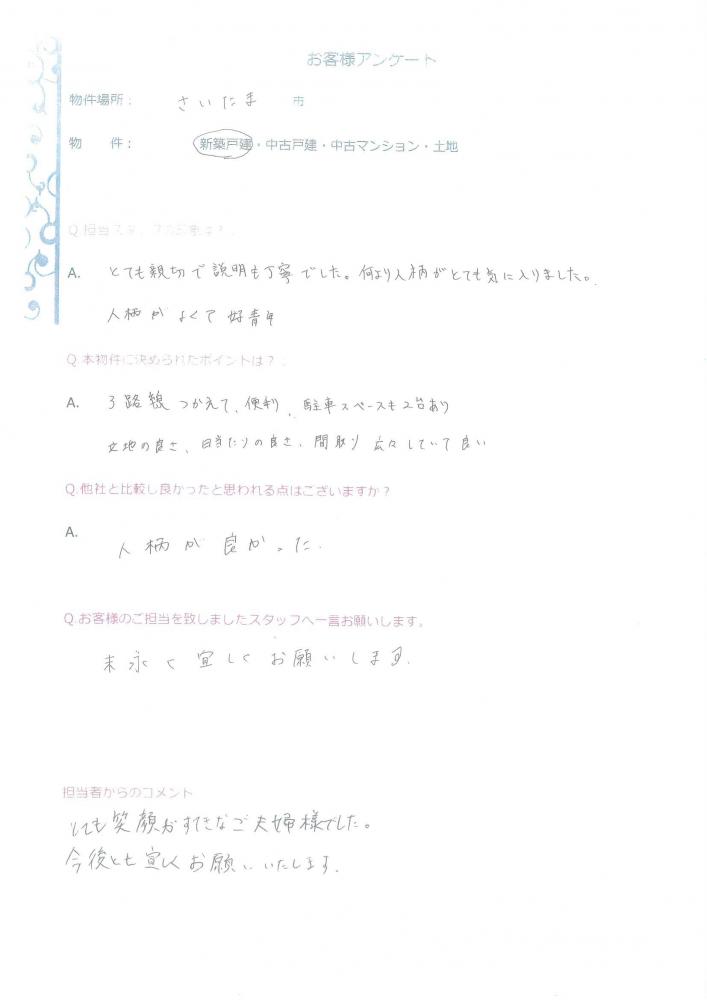 お客様アンケート
物件場所： さいたま 市
物　件： 新築戸建・中古戸建・中古マンション・土地
Q.担当スタッフの印象は？
A. とても親切で説明も丁寧でした。何より人柄がとても気に入りました。
人柄がよくて好青年
Q.本物件に決められたポイントは？
A. 3路線つかえて、便利、駐車スペースも2台あり
立地の良さ、日当たりの良さ、間取り広々していて良い
Q.他社と比較し良かったと思われる点はございますか？
A.
人柄が良かった.
Q.お客様のご担当を致しましたスタッフへ一言お願いします。
末永く宜しくお願いします.
担当者からのコメント
とても笑顔がすてきなご夫婦様でした。
今後とも宜しくお願いいたします.